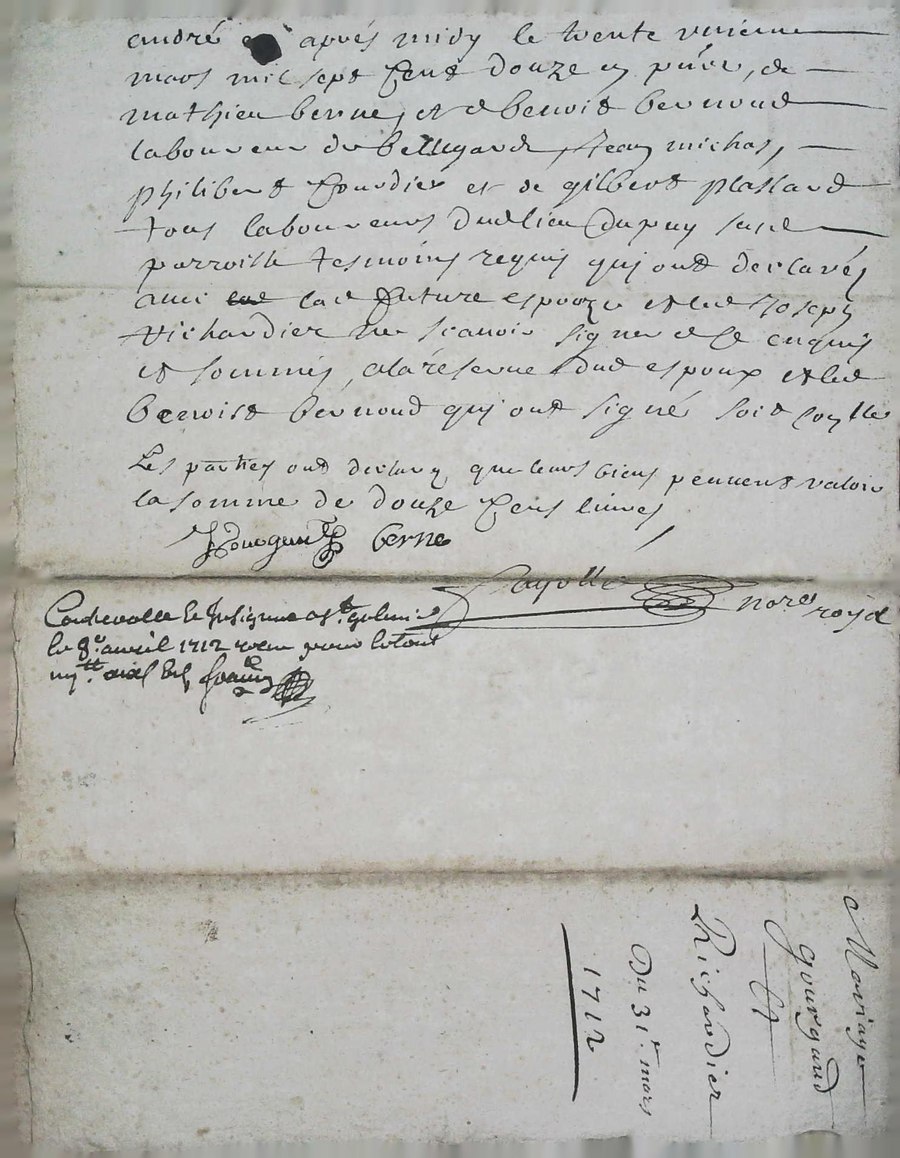 andré apvés midy le trente unieme
mars mil sept Cent douze en pnce, de
mathieu berne, et de benoist bernoud
laboureur de bellegarde, Jean michas,
philibert Courdier et de gilbert plassard
tous laboureurs dudlieu Dupuy susd
parroisse tesmoins requis qui ont declarés
avec lad future espouze et led Joseph
Richardier ne scavoir signer de ce enquis
et sommés, ala réserve dud espoux et led
benoist bernoud qui ont signé soit
Les parties ont declaré que leurs biens peuvent valoir
la somme de douze Cens livres
JGourgaud berne
Fayolle nore royal
Controolle le
le 8e. avril 1712 receu pour le tout
Mariage
gourgaud
Et
Richardier
Du 31e mars
1712